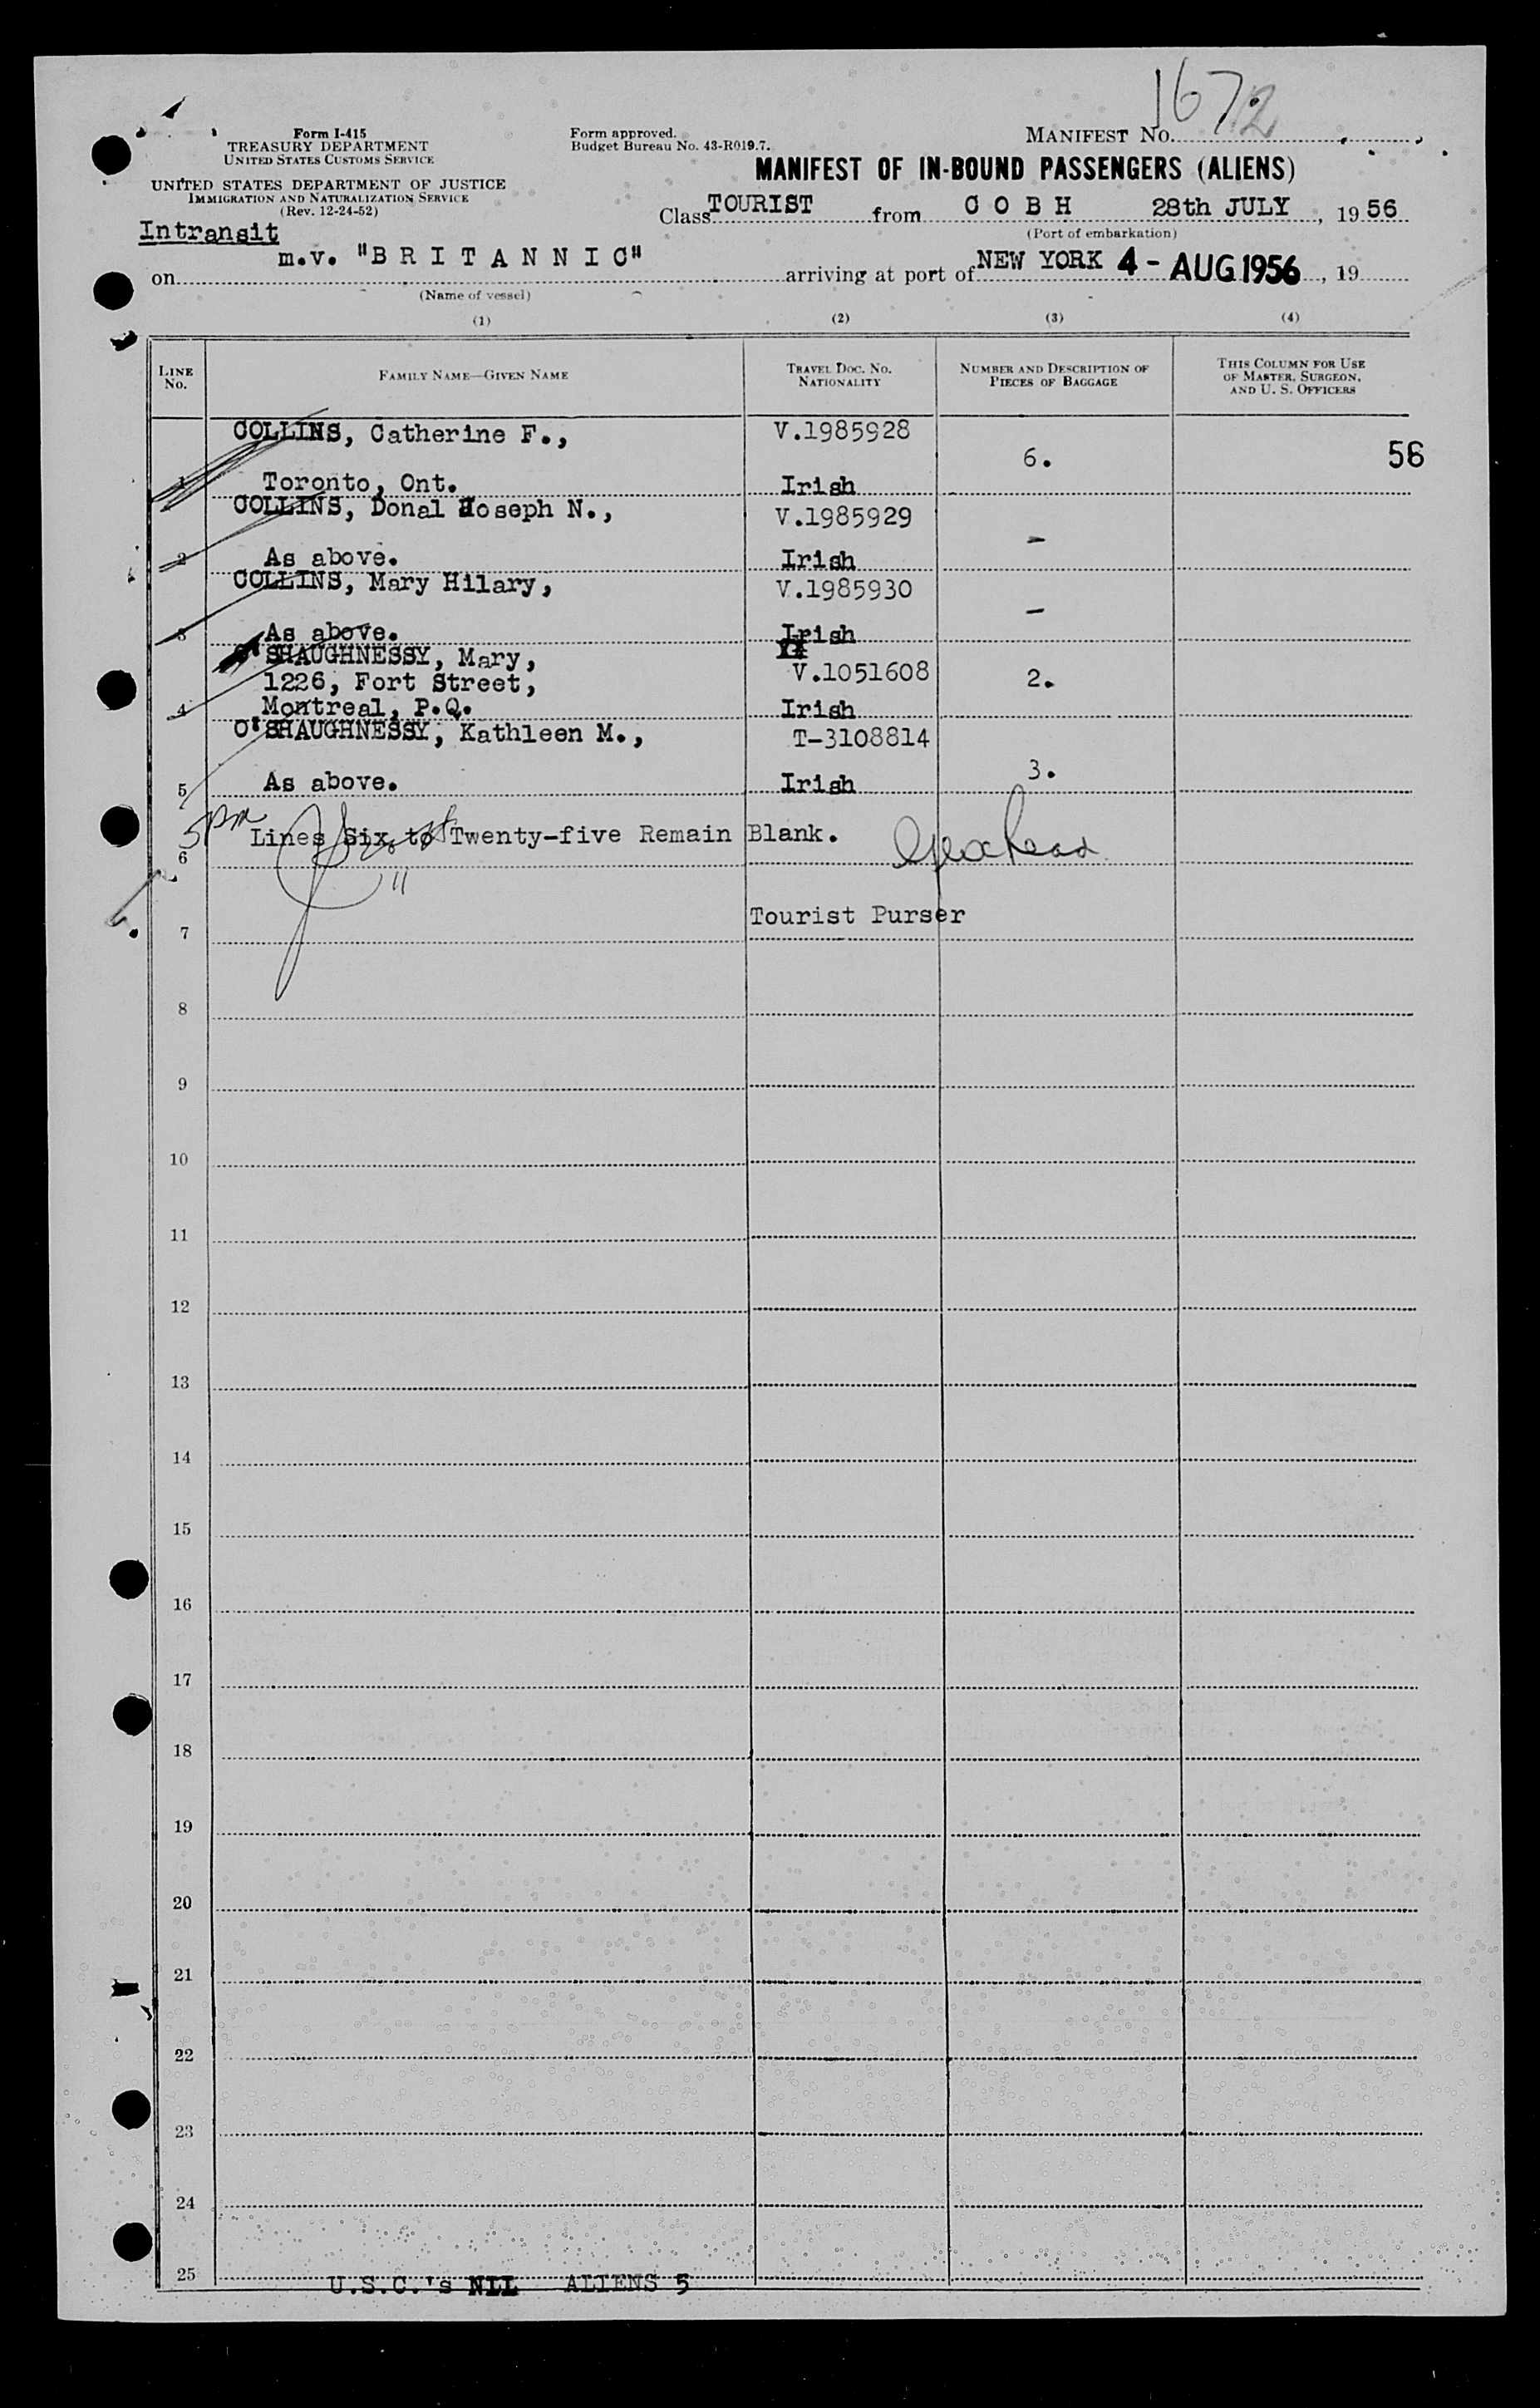 1672
Form I-415
TREASURY DEPARTMENT
UNITED STATES CUSTOMS SERVICE
UNITED STATES DEPARTMENT OF JUSTICE
IMMIGRATION AND NATURALIZATION SERVICE
(Rev. 12-24-52)
Form approved.
Budget Bureau No. 43-R019.7.
MANIFEST NO.
MANIFEST OF IN-BOUND PASSENGERS (ALIENS)
Class TOURIST from C O B H 28th JULY, 1956
(Port of embarkation)
Intransit
on m.v. "B R I T A N N I C" arriving at port of NEW YORK 4 - AUG 1956, 19
(Name of vessel)
(1) (2) (3) (4)
LINE NO.
FAMILY NAME—GIVEN NAME
TRAVEL DOC. NO. NATIONALITY
NUMBER AND DESCRIPTION OF PIECES OF BAGGAGE
THIS COLUMN FOR USE OF MASTER, SURGEON, AND U. S. OFFICERS
COLLINS, Catherine F., V.1985928
6. 56
1 Toronto, Ont. Irish
COLLINS, Donal Joseph N., V.1985929
-
2 As above. Irish
COLLINS, Mary Hilary, V.1985930
-
3 As above. Irish
O'SHAUGHNESSY, Mary,
1226, Fort Street, V.1051608 2.
4 Montreal, P.Q. Irish
O'SHAUGHNESSY, Kathleen M., T-3108814
3.
5 As above. Irish
5pm
Lines Six to Twenty-five Remain Blank.
6
11
Tourist Purser
7
8
9
10
11
12
13
14
15
16
17
18
19
20
21
22
23
24
25
U.S.C.'s NIL ALIENS 5